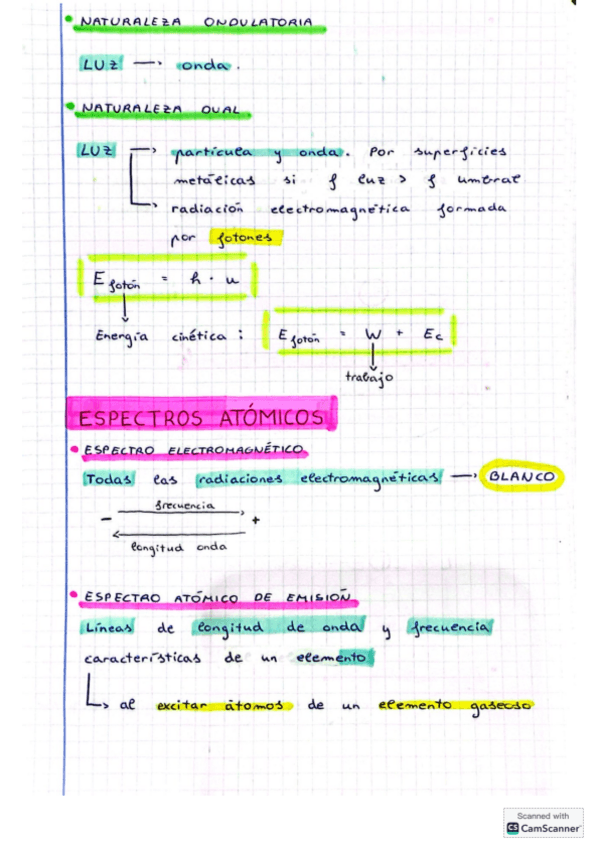 NATURALEZA ONDULATORIA
LUZ → onda.
NATURALEZA DUAL
LUZ → partícula y onda. Por superficies
metálicas si f luz > f umbral
→ radiación electromagnética formada
por fotones
E fotón = h · u
Energía cinética : E fotón = W + Ec
trabajo
ESPECTROS ATÓMICOS
ESPECTRO ELECTROMAGNÉTICO
Todas las radiaciones electromagnéticas → BLANCO
frecuencia
- +
longitud onda
ESPECTRO ATÓMICO DE EMISIÓN
Líneas de longitud de onda y frecuencia
características de un elemento
→ al excitar átomos de un elemento gaseoso
Scanned with
CS CamScanner